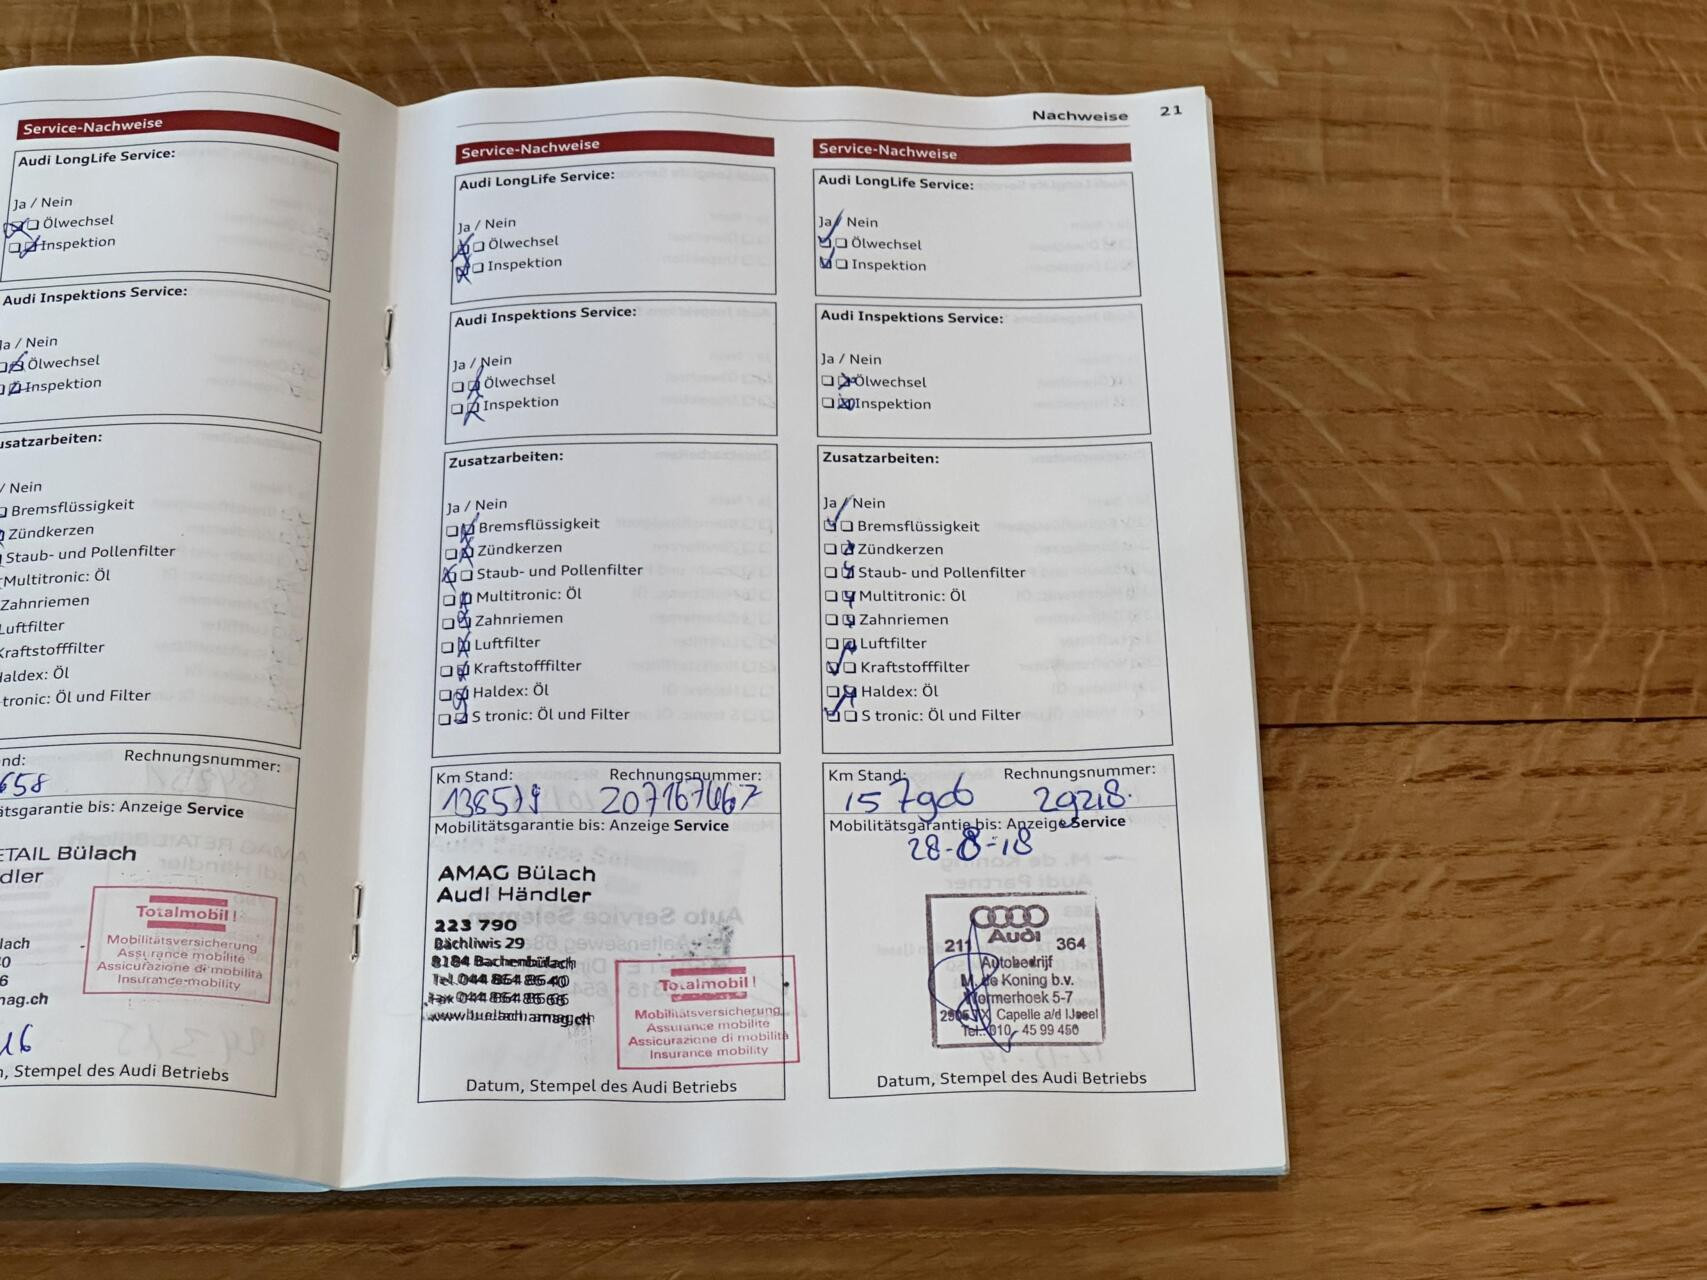 Nachweise 21
Service-Nachweise
Audi LongLife Service:
Ja / Nein
Ölwechsel
Inspektion
Audi Inspektions Service:
Ja / Nein
Ölwechsel
Inspektion
Zusatzarbeiten:
/ Nein
Bremsflüssigkeit
Zündkerzen
Staub- und Pollenfilter
Multitronic: Öl
Zahnriemen
Luftfilter
Kraftstofffilter
Haldex: Öl
tronic: Öl und Filter
nd: Rechnungsnummer:
658
ätsgarantie bis: Anzeige Service
ETAIL Bülach
dler
lach
0
6
mag.ch
Totalmobil!
Mobilitätsversicherung
Assurance mobilité
Assicurazione di mobilità
Insurance-mobility
16
n, Stempel des Audi Betriebs
Service-Nachweise
Audi LongLife Service:
Ja / Nein
Ölwechsel
Inspektion
Audi Inspektions Service:
Ja / Nein
Ölwechsel
Inspektion
Zusatzarbeiten:
Ja / Nein
Bremsflüssigkeit
Zündkerzen
Staub- und Pollenfilter
Multitronic: Öl
Zahnriemen
Luftfilter
Kraftstofffilter
Haldex: Öl
S tronic: Öl und Filter
Km Stand: Rechnungsnummer:
138579 207167667
Mobilitätsgarantie bis: Anzeige Service
AMAG Bülach
Audi Händler
223 790
Bächliwis 29
8184 Bachenbülach
Tel. 044 864 86 40
Fax 044 864 86 66
www.buelach.amag.ch
Totalmobil!
Mobilitätsversicherung
Assurance mobilité
Assicurazione di mobilità
Insurance mobility
Datum, Stempel des Audi Betriebs
Service-Nachweise
Audi LongLife Service:
Ja / Nein
Ölwechsel
Inspektion
Audi Inspektions Service:
Ja / Nein
Ölwechsel
Inspektion
Zusatzarbeiten:
Ja / Nein
Bremsflüssigkeit
Zündkerzen
Staub- und Pollenfilter
Multitronic: Öl
Zahnriemen
Luftfilter
Kraftstofffilter
Haldex: Öl
S tronic: Öl und Filter
Km Stand: Rechnungsnummer:
157906 29218.
Mobilitätsgarantie bis: Anzeige Service
28-8-18
Audi
211 364
Autobedrijf
M. de Koning b.v.
Wormerhoek 5-7
2905 TX Capelle a/d IJssel
Tel.: 010 - 45 99 450
Datum, Stempel des Audi Betriebs